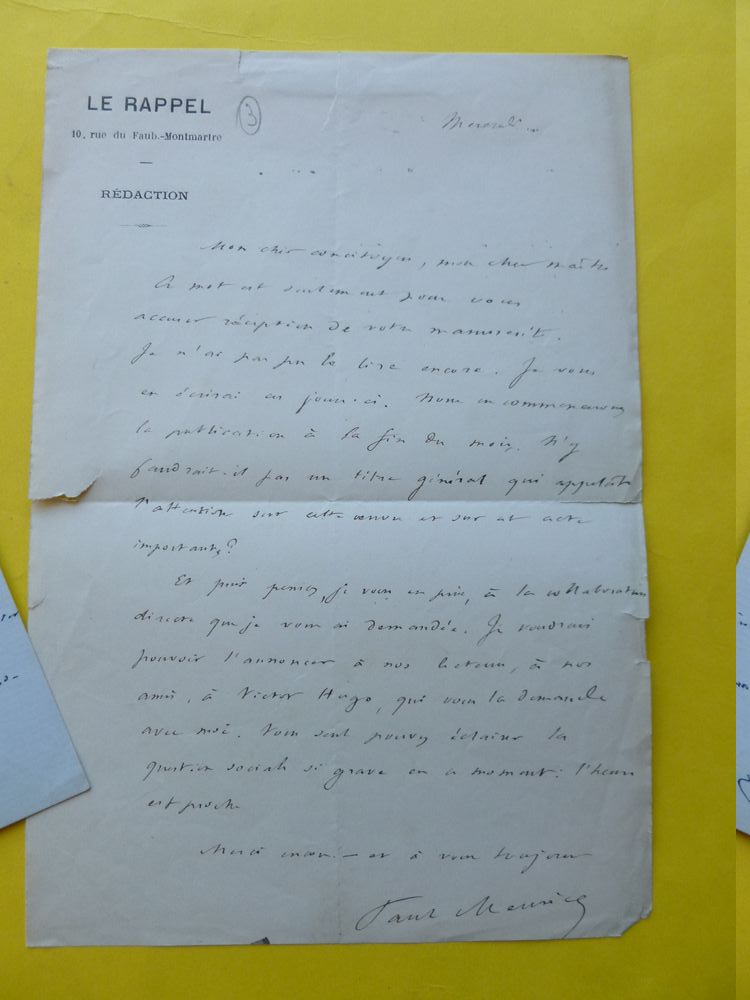 LE RAPPEL
3
10, rue du Faub.-Montmartre
Mercredi
RÉDACTION
Mon cher concitoyen, mon cher maître
Ce mot est seulement pour vous
accuser réception de votre manuscrit.
Je n'ai pas pu le lire encore. Je vous
en écrirai ces jours-ci. Nous en commencerons
la publication à la fin du mois. N'y
faudrait-il pas un titre général qui appelât
l'attention sur cette œuvre et sur cet acte
importants?
Et puis pensez, je vous en prie, à la collaboration
directe que je vous ai demandée. Je voudrais
pouvoir l'annoncer à nos lecteurs, à nos
amis, à Victor Hugo, qui vous la demande
avec moi. Vous seul pouvez éclairer la
question sociale si grave en ce moment: l'heure
est proche
Merci encore — et à vous toujours
Paul Meurice